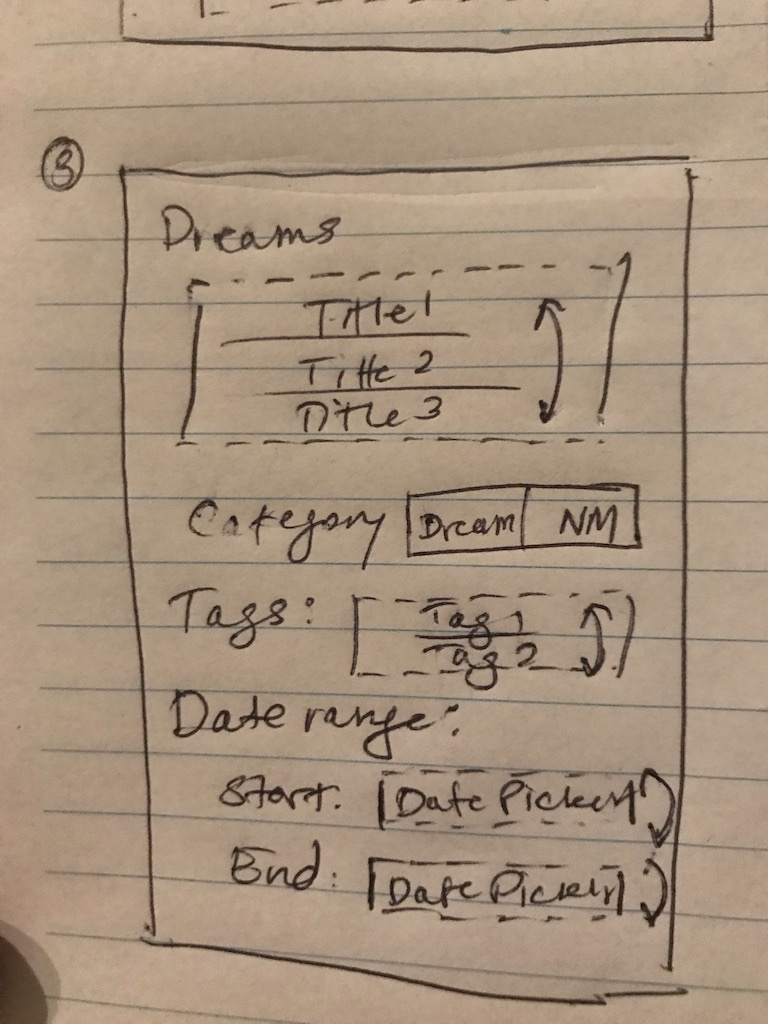 3
Dreams
Title 1
Title 2
Title 3
Category Dream NM
Tags: Tag 1
Tag 2
Date range:
Start: Date Picker
End: Date Picker